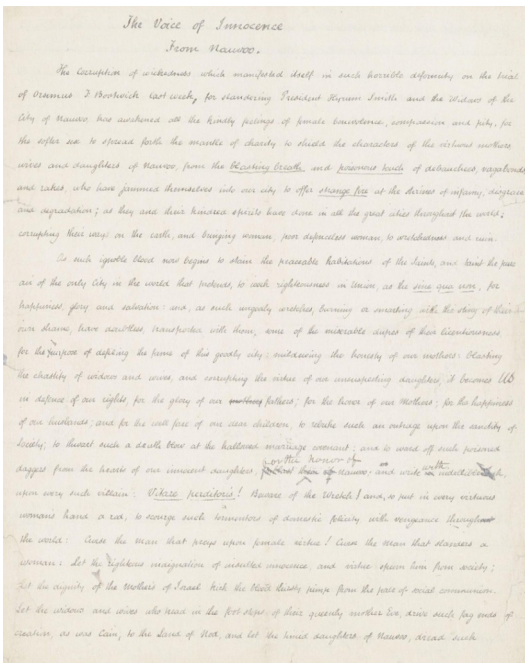 The Voice of Innocence
From Nauvoo.
The corruption of wickedness which manifested itself in such horrible deformity on the trial
of Orsimus F. Bostwick last week, for slandering President Hyrum Smith and the Widows of the
City of Nauvoo, has awakened all the kindly feelings of female benevolence, compassion and pity, for
the softer sex to spread forth the mantle of charity to shield the characters of the virtuous mothers
wives and daughters of Nauvoo, from the blasting breath and poisonous touch of debauchees, vagabonds,
and rakes, who have jammed themselves into our city to offer strange fire at the shrines of infamy, disgrace
and degradation; as they and their kindred spirits have done in all the great cities throughout the world;
corrupting their way on the earth, and bringing woman, poor defenceless woman, to wretchedness and ruin.
As such ignoble blood now begins to stain the peaceable habitations of the Saints, and taint the pure
air of the only City in the world that pretends to work righteousness in Union, as the sine qua non, for
happiness, glory and salvation: and, as such ungodly wretches, burning or smarting with the sting of their
own shame, have doubtless, transported with them, some of the miserable dupes of their licentiousness,
for the purpose of defiling the fame of this goodly city: mildewing the honesty of our mothers: blasting
the chastity of widows and wives, and corrupting the virtue of our unsuspecting daughters, it becomes US
in defence of our rights, for the glory of our fathers; for the honor of our Mothers; for the happiness
of our husbands; and for the well fare of our dear children, to rebuke such an outrage upon the chastity of
Society; to thwart such a death blow at the hallowed marriage covenant; and to ward off such poisoned
daggers from the hearts of our innocent daughters, for the honor of Nauvoo; and write with
upon every such villain: Vitare perditoris! Beware of the Wretch! and, so put in every virtuous
woman's hand a rod, to scourge such tormentors of domestic felicity, with vengeance throughout
the world: Curse the man that preys upon female virtue! Curse the man that slanders a
woman: Let the righteous indignation of insulted innocence, and virtue spurn him from society;
Let the dignity of the Mothers of Israel kick the blood thirsty pimp from the pale of social communion.
Let the widows and wives who tread in the foot steps of their queenly mother Eve, drive such fag ends of
creation, as was Cain, to the Land of Nod, and let the timid daughters of Nauvoo, dread such